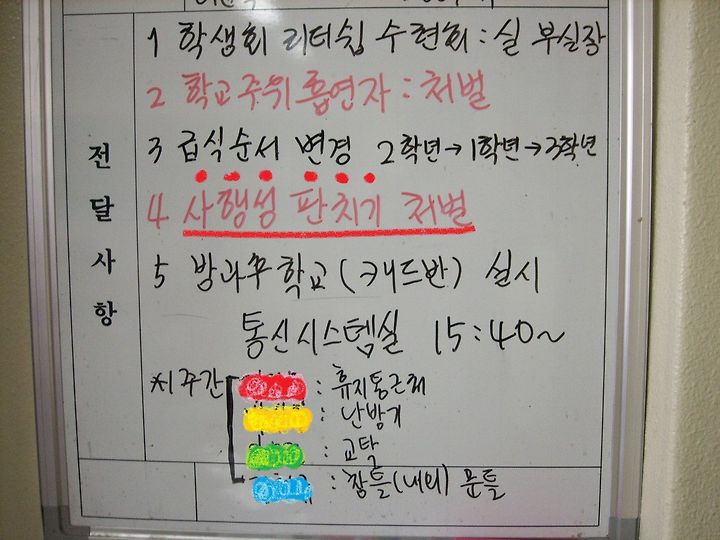 1 학생회 리더쉽 수련회 : 실 부실장
2 학교주위 흡연자 : 처벌
3 급식순서 변경 2학년→1학년→3학년
전달사항
4 사행성 판치기 처벌
5 방과후학교(캐드반) 실시
통신시스템실 15:40~
*1주간
: 휴지통근처
: 난방기
: 교탁
: 창틀(내외) 문틀